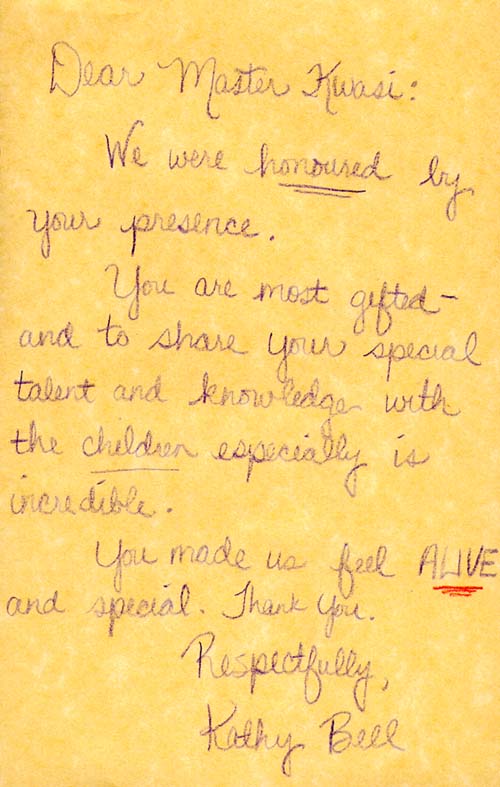 Dear Master Kwasi:
We were honoured by
your presence.
You are most gifted -
and to share your special
talent and knowledge with
the children especially is
incredible.
You made us feel ALIVE
and special. Thank You.
Respectfully,
Kathy Bell